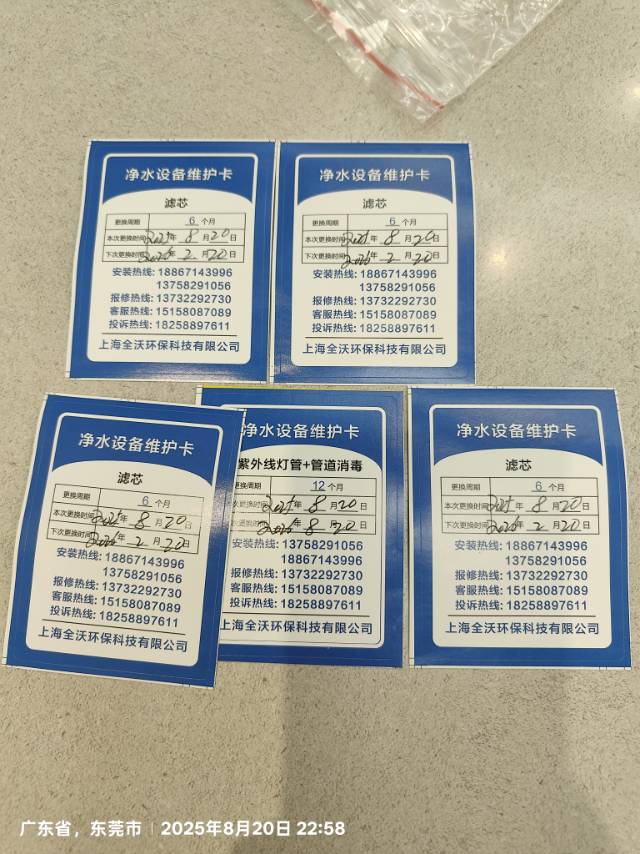 净水设备维护卡
滤芯
更换周期 6 个月
本次更换时间 2025年 8 月 20 日
下次更换时间 2026年 2 月 20 日
安装热线: 18867143996
13758291056
报修热线: 13732292730
客服热线: 15158087089
投诉热线: 18258897611
上海全沃环保科技有限公司
净水设备维护卡
滤芯
更换周期 6 个月
本次更换时间 2025年 8 月 20 日
下次更换时间 2026年 2 月 20 日
安装热线: 18867143996
13758291056
报修热线: 13732292730
客服热线: 15158087089
投诉热线: 18258897611
上海全沃环保科技有限公司
净水设备维护卡
滤芯
更换周期 6 个月
本次更换时间 2025年 8 月 20 日
下次更换时间 2026年 2 月 20 日
安装热线: 18867143996
13758291056
报修热线: 13732292730
客服热线: 15158087089
投诉热线: 18258897611
上海全沃环保科技有限公司
净水设备维护卡
紫外线灯管+管道消毒
更换周期 12 个月
本次更换时间 2025年 8 月 20 日
次更换时间 2026年 8 月 20 日
安装热线: 13758291056
18867143996
报修热线: 13732292730
客服热线: 15158087089
投诉热线: 18258897611
上海全沃环保科技有限公司
净水设备维护卡
滤芯
更换周期 6 个月
本次更换时间 2025年 8 月 20 日
下次更换时间 2026年 2 月 20 日
安装热线: 18867143996
13758291056
报修热线: 13732292730
客服热线: 15158087089
投诉热线: 18258897611
上海全沃环保科技有限公司
广东省，东莞市 | 2025年8月20日 22:58